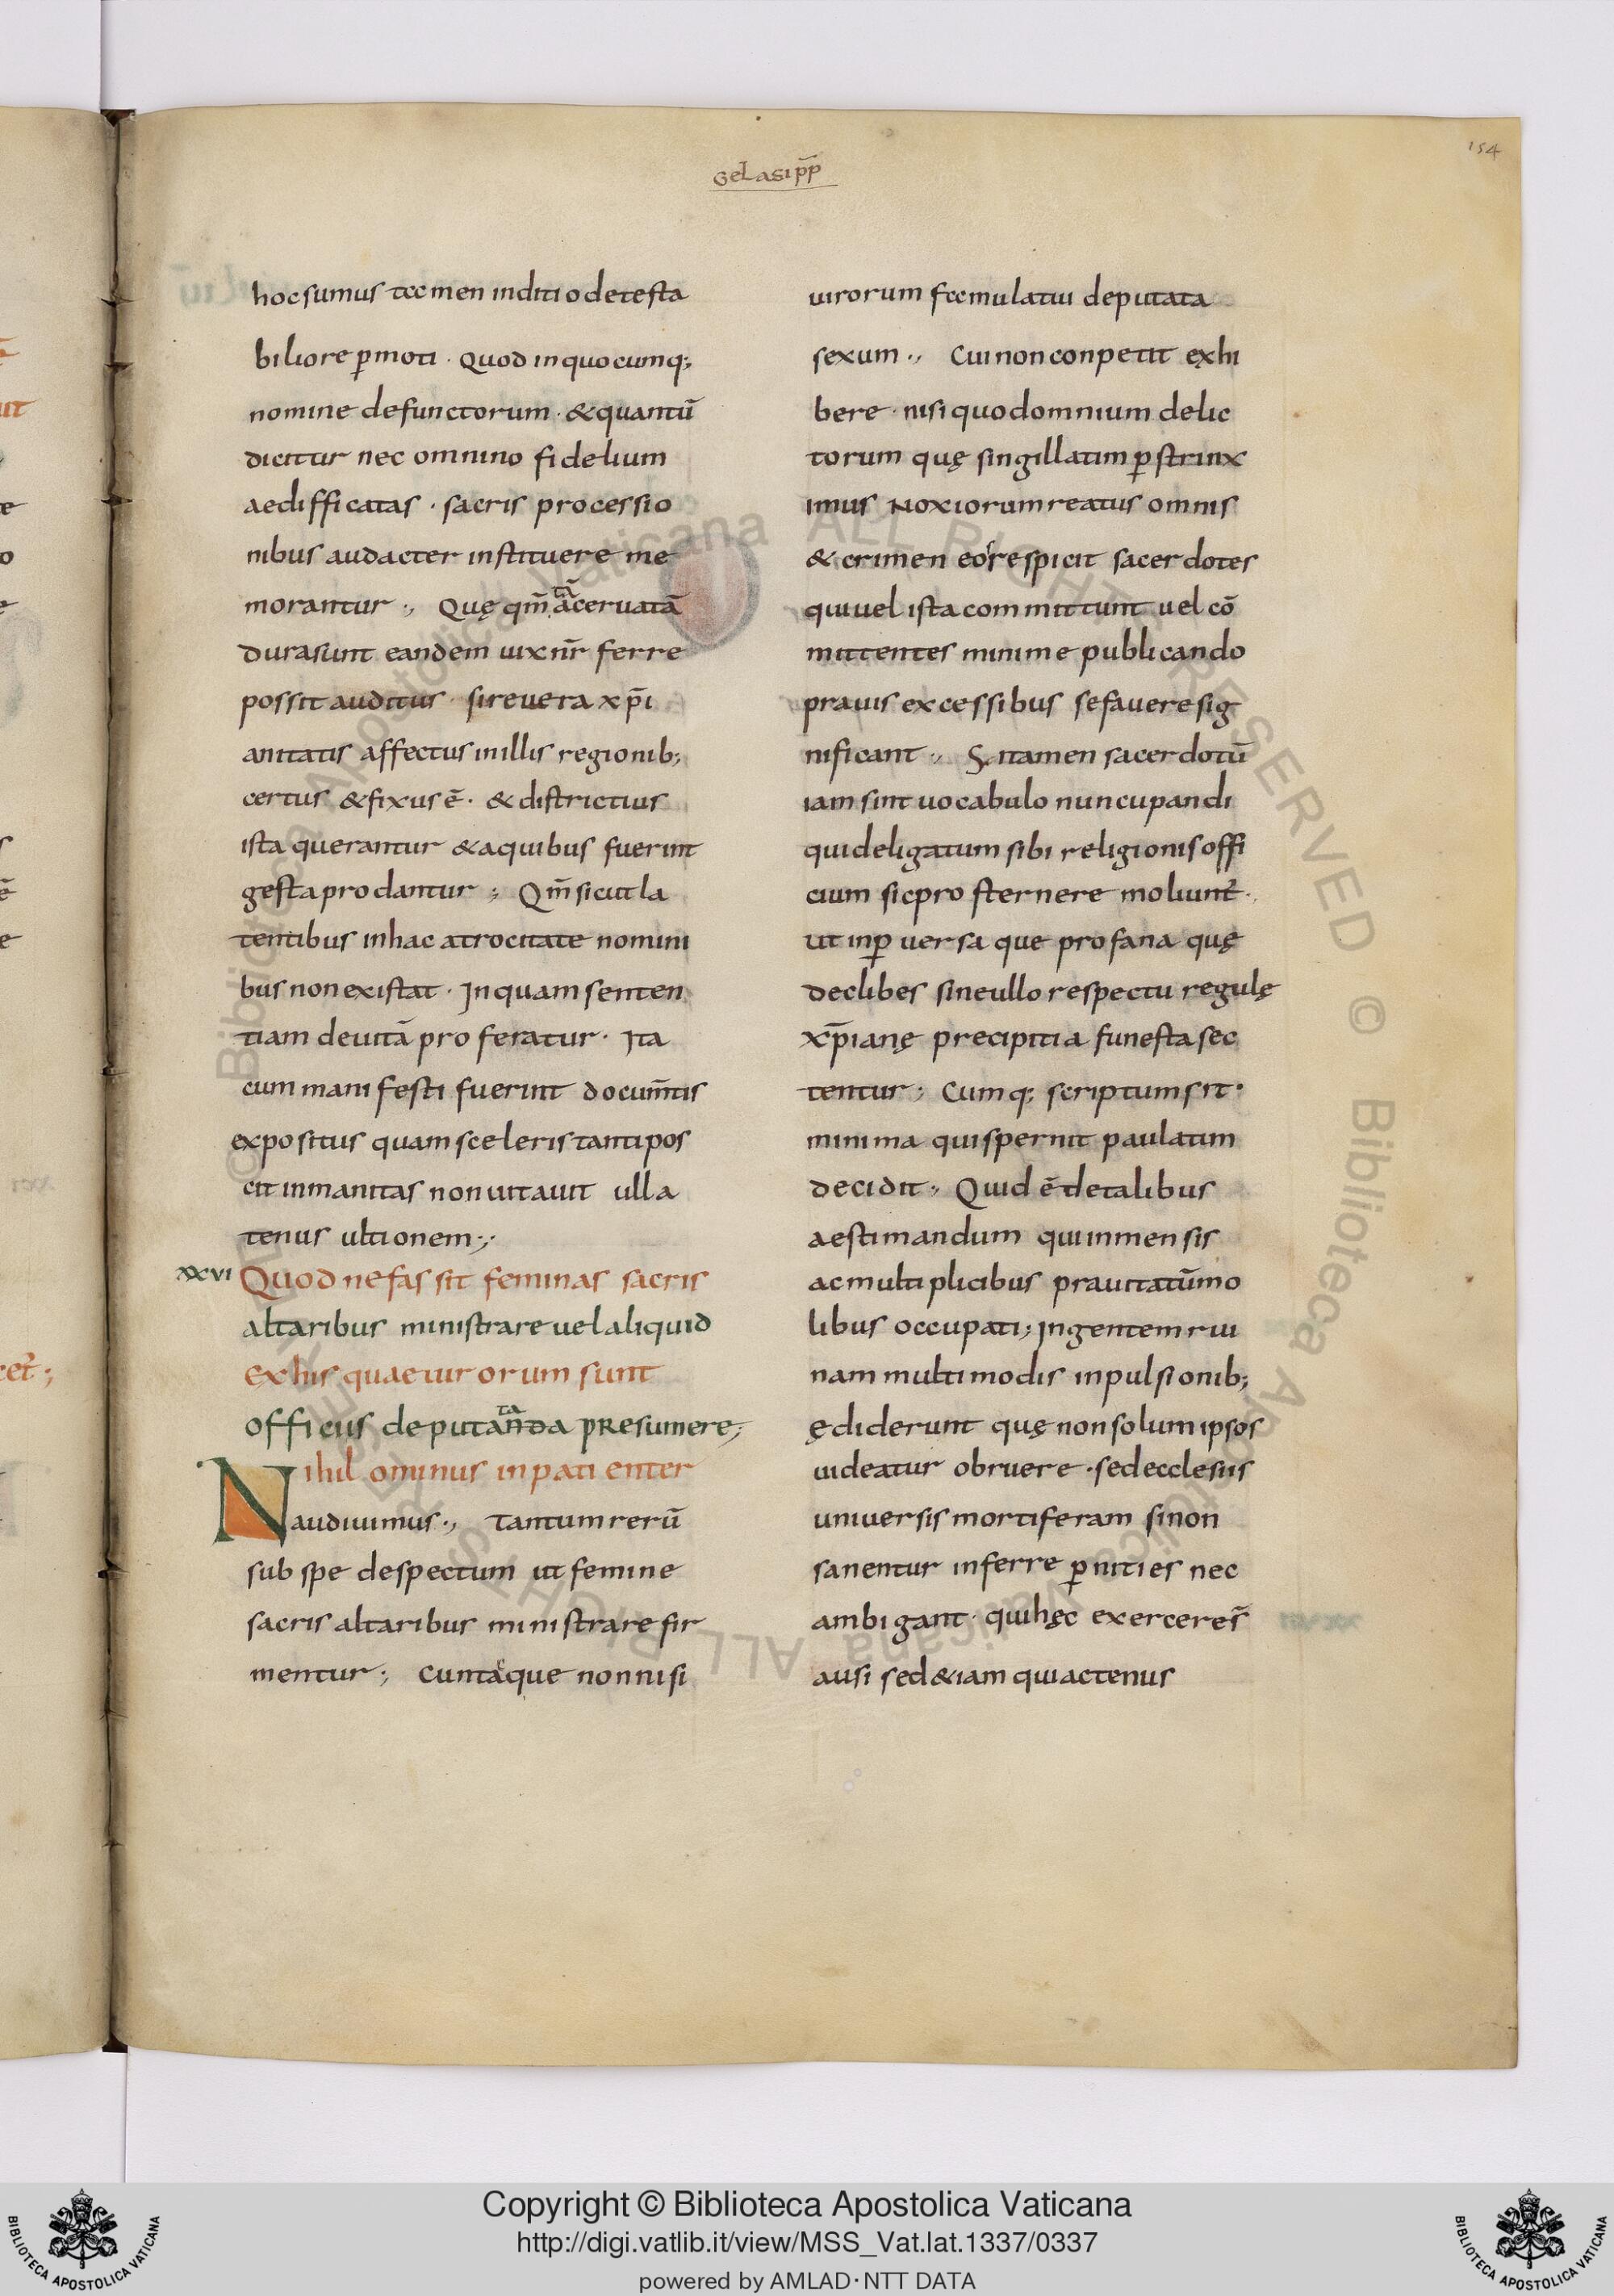 154
Gelasi p̄p̄
hoc sumus tamen inditio detesta
biliore ꝑmoti · Quod in quocumq;
nomine defunctorum · & quantū
dicitur nec omnino fidelium
aedifficatas · sacris processio
nibus audacter instituere me
morantur ., Quę qm̄ aceruatā
dura sunt eandem uix nr̄ ferre
possit auditus · si reuera xp̄i
anitatis affectus in illis regionib;
certus & fixus ē · & districtius
ista querantur & a quibus fuerint
gesta prodantur ; Qm̄ sicut la
tentibus in hac atrocitate nomini
bus non existat · In quam senten
tiam deuitā proferatur · Ita
cum manifesti fuerint docum̄tis
expositus quam sceleris tanti pos
cit inmanitas non uitauit ulla
tenus ultionem ;
xxvi Quod nefas sit feminas sacris
altaribus ministrare uel aliquid
ex his quae uirorum sunt
officiis deputanda presumere;
Nihil ominus inpatienter
audiuimus ., Tantum rerū
sub spe despectum ut femine
sacris altaribus ministrare fir
mentur ; Cuntaque non nisi
uirorum famulatui deputata
sexum ., Cui non conpetit exhi
bere · nisi quod omnium delic
torum quę singillatim ꝑstrinx
imus Noxiorum reatus omnis
& crimen eos respicit sacerdotes
qui uel ista committunt uel cō
mittentes minime publicando
prauis excessibus se fauere sig
nificant ., Si tamen sacerdotū
iam sint uocabulo nuncupandi
qui deligatum sibi religionis offi
cium sic prosternere moliunt̄ ·
ut in ꝑuersa que profana quę
declibes sine ullo respectu regulę
xp̄ianę precipitia funesta sec
tentur ; Cumq; scriptum sit ·
minima qui spernit paulatim
decidit ., Quid ē de talibus
aestimandum qui inmensis
ac multiplicibus prauitatū mo
libus occupati; Ingentem rui
nam multimodis inpulsionib;
ędiderunt quę non solum ipsos
uideatur obruere · sed ecclesiis
uniuersis mortiferam si non
sanentur inferre ꝑnities nec
ambigant · qui hęc exerceres̄
ausi sed &iam qui actenus
Copyright © Biblioteca Apostolica Vaticana
http://digi.vatlib.it/view/MSS_Vat.lat.1337/0337
powered by AMLAD·NTT DATA
BIBLIOTECA APOSTOLICA VATICANA
BIBLIOTECA APOSTOLICA VATICANA